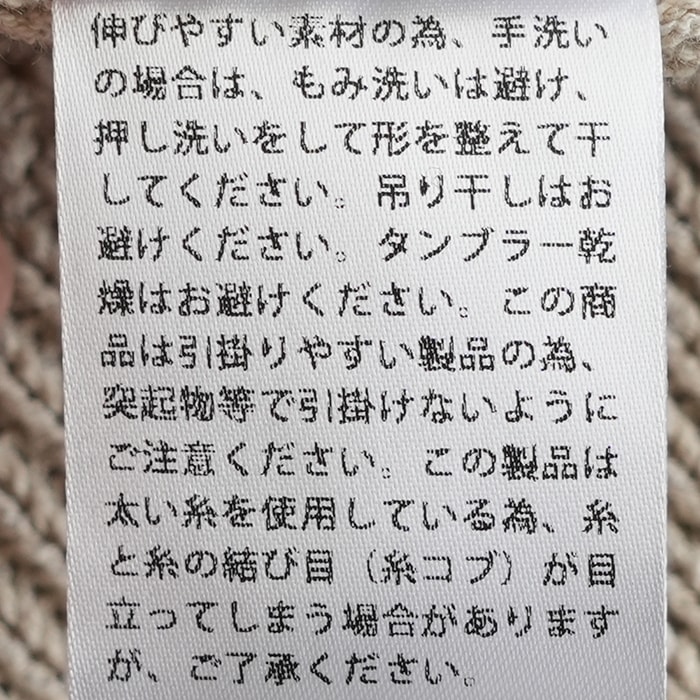 伸びやすい素材の為、手洗い
の場合は、もみ洗いは避け、
押し洗いをして形を整えて干
してください。吊り干しはお
避けください。タンブラー乾
燥はお避けください。この商
品は引掛りやすい製品の為、
突起物等で引掛けないように
ご注意ください。この製品は
太い糸を使用している為、糸
と糸の結び目（糸コブ）が目
立ってしまう場合があります
が、ご了承ください。